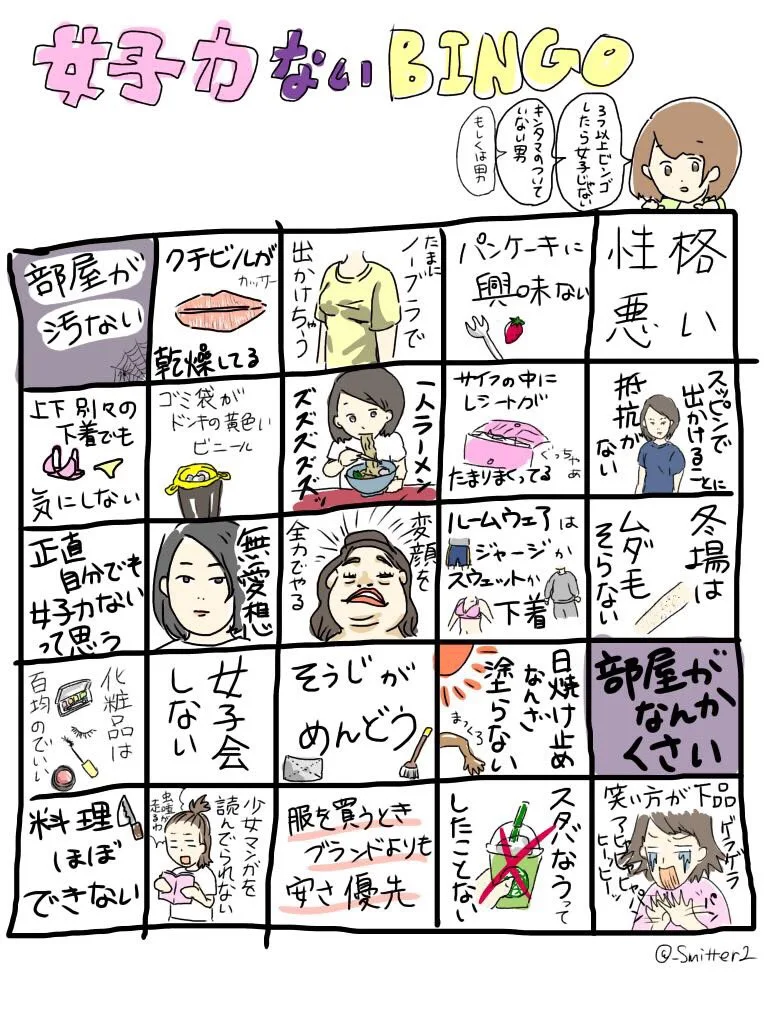 女子力ないBINGO
3つ以上ビンゴ
したら女子じゃない
キンタマのついて
いない男
もしくは男
部屋が
汚ない
クチビルが
カッサー
乾燥してる
たまに
ノーブラで
出かけちゃう
パンケーキに
興味ない
性格
悪い
上下別々の
下着でも
気にしない
ゴミ袋が
ドンキの黄色い
ビニール
一人ラーメン
ズズズズズッ
サイフの中に
レシートが
ぐっちゃぁ
たまりまくってる
スッピンで
出かけることに
抵抗が
ない
正直
自分でも
女子力ない
って思う
無愛想
変顔を
全力でやる
ルームウェアは
ジャージか
スウェットか
下着
冬場は
ムダ毛
そらない
化粧品は
百均のでいい
女子会
しない
そうじが
めんどう
日焼け止め
なんざ
塗らない
まっくろ
部屋が
なんか
くさい
料理
ほぼ
できない
少女マンガを
読んでられない
虫唾が
走るわ
服を買うとき
ブランドよりも
安さ優先
スタバなうって
したことない
笑い方が下品
ゲラゲラ
アヒャヒャヒャ
ヒーヒッヒーッ
パン
パン
@_Smitter2